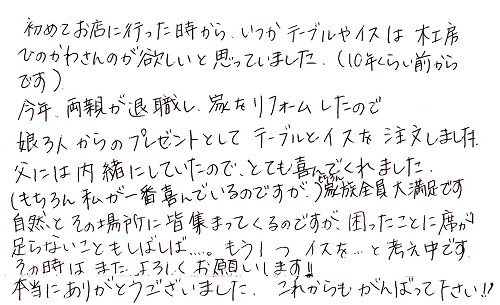 初めてお店に行った時から、いつかテーブルやイスは木工房
ひのかわさんのが欲しいと思っていました。(10年くらい前から
です)
今年、両親が退職し、家をリフォームしたので
娘3人からのプレゼントとしてテーブルとイスを注文しました。
父には内緒にしていたので、とても喜んでくれました。
(もちろん私が一番喜んでいるのですが、)もちろん家族全員大満足です
自然とその場所に皆集まってくるのですが、困ったことに席が
足らないこともしばしば……。もう1つイスを…と考え中です。
その時はまたよろしくお願いします!!
本当にありがとうございました。これからもがんばって下さい!!